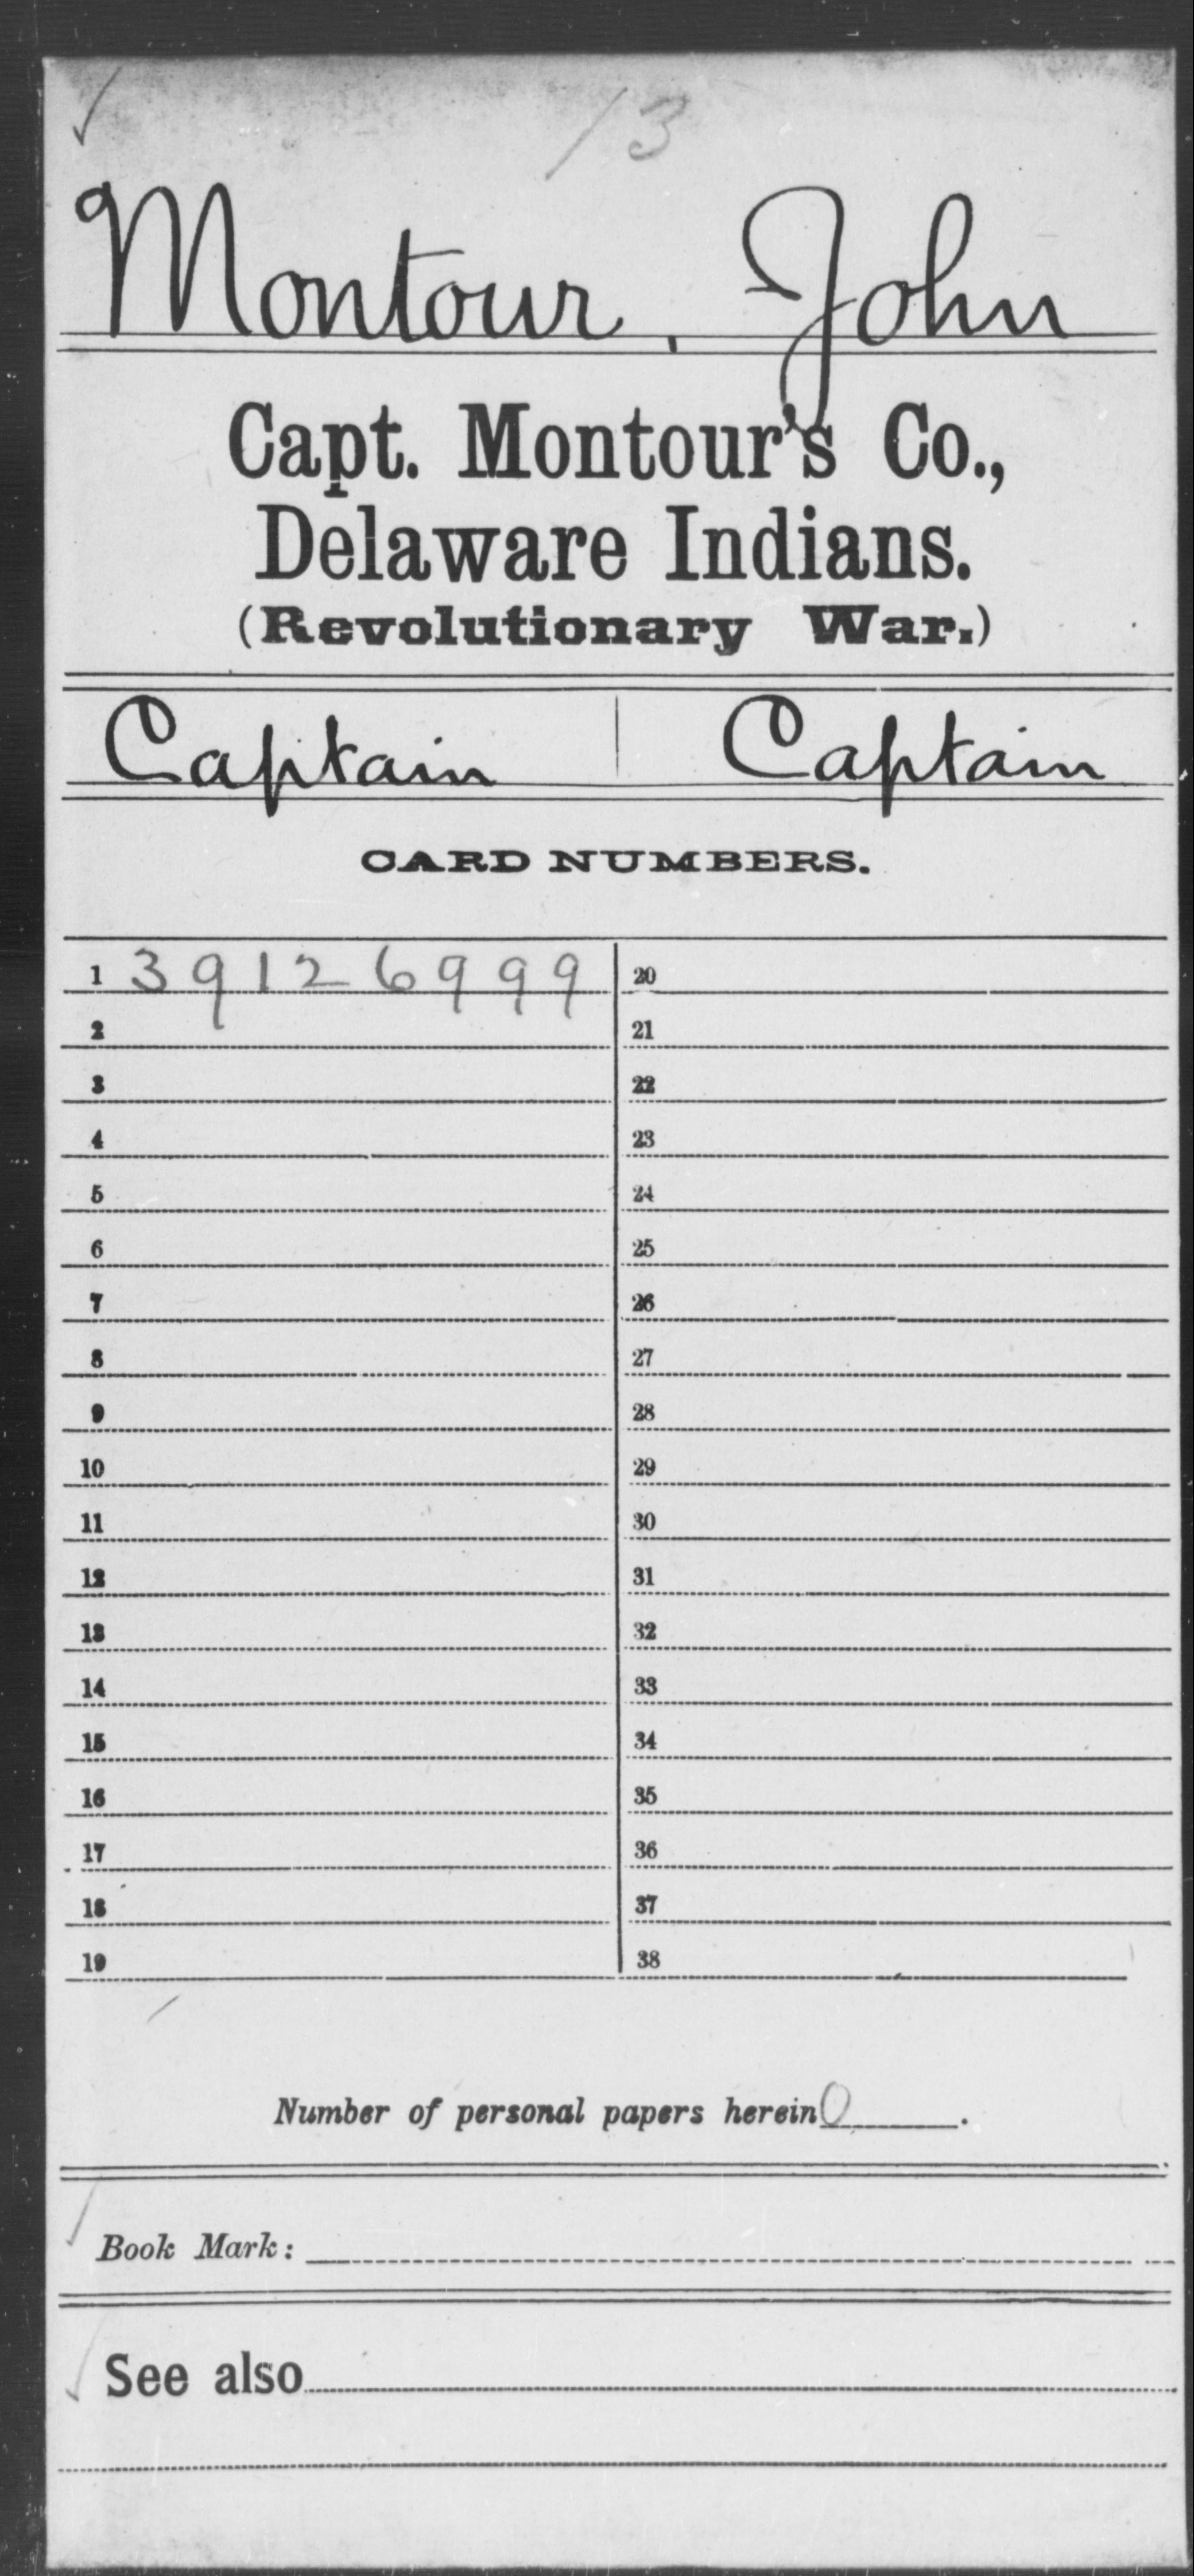 13
Montour, John
Capt. Montour's Co.,
Delaware Indians.
(Revolutionary War.)
Captain | Captain
CARD NUMBERS.
1 39126999 20
2 21
3 22
4 23
5 24
6 25
7 26
8 27
9 28
10 29
11 30
12 31
13 32
14 33
15 34
16 35
17 36
18 37
19 38
Number of personal papers herein 0.
Book Mark:
See also